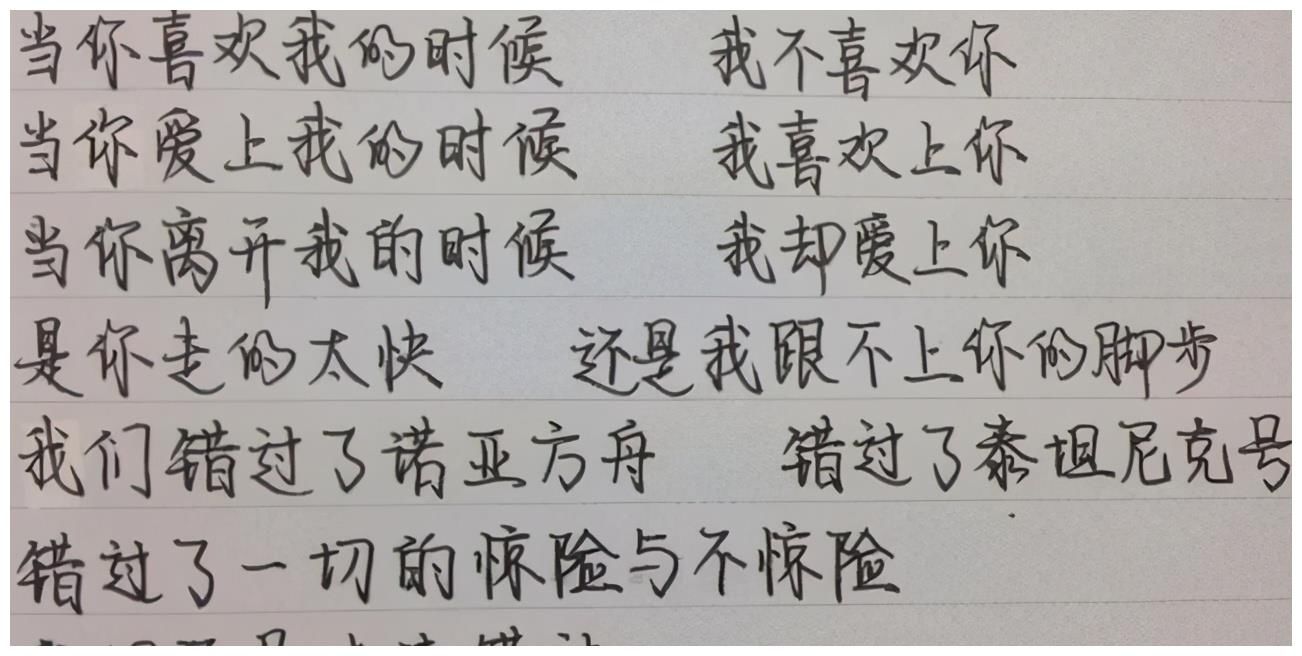 当你喜欢我的时候 我不喜欢你
当你爱上我的时候 我喜欢上你
当你离开我的时候 我却爱上你
是你走的太快 还是我跟不上你的脚步
我们错过了诺亚方舟 错过了泰坦尼克号
错过了一切的惊险与不惊险